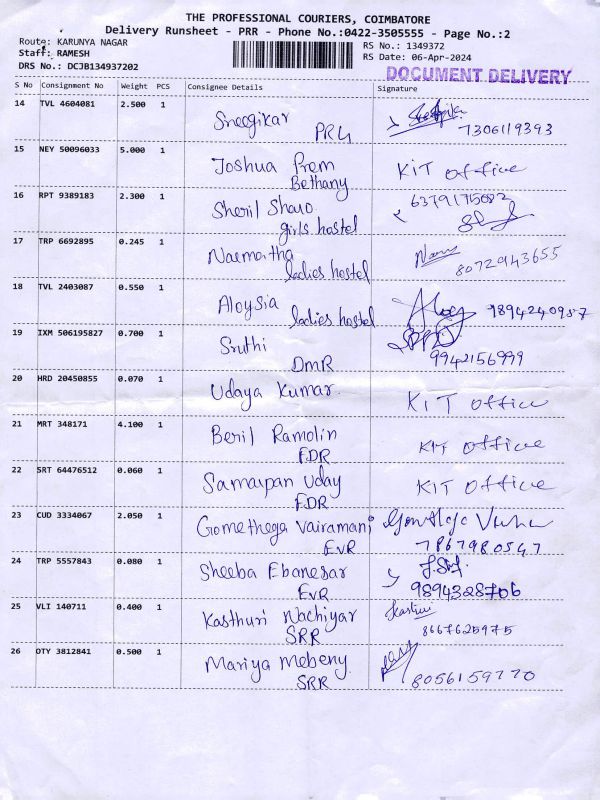 THE PROFESSIONAL COURIERS, COIMBATORE
Delivery Runsheet - PRR - Phone No.:0422-3505555 - Page No.:2
Route: KARUNYA NAGAR
RS No.: 1349372
Staff: RAMESH
RS Date: 06-Apr-2024
DRS No.: DCJB134937202
DOCUMENT DELIVERY
S No Consignment No Weight PCS Consignee Details Signature
14 TVL 4604081 2.500 1
Sreegikar
PRU
7306119393
15 NEY 50096033 5.000 1
Joshua Prem KIT Office
Bethany
16 RPT 9389183 2.300 1
Sheril
girls hostel
17 TRP 6692895 0.245 1
ladies hostel
8072943655
18 TVL 2403087 0.550 1
Aloysia
ladies hostel
9894240957
19 IXM 506195827 0.700 1
Sruthi
DMR
9942156999
20 HRD 20450855 0.070 1
Udaya Kumar KIT Office
21 MRT 348171 4.100 1
Beril Ramolin KIT Office
FDR
22 SRT 64476512 0.060 1
Samarpan Uday KIT Office
FDR
23 CUD 3334067 2.050 1
Gomethega Vairamani
EVR
7867980547
24 TRP 5557843 0.080 1
Sheeba Ebanesar
EVR
9894328706
25 VLI 140711 0.400 1
Kasthuri Nachiyar
SRR
8667625975
26 OTY 3812841 0.500 1
Mariya Mebeny
SRR
8056159770